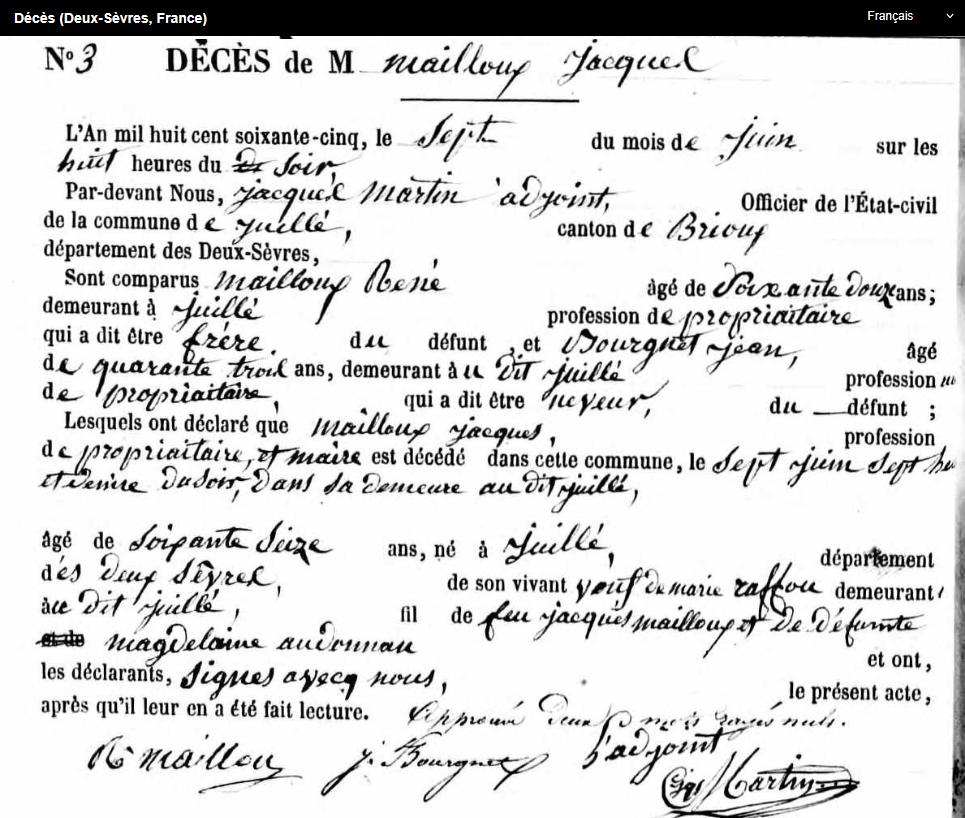 Décès (Deux-Sèvres, France)
Français
N° 3 DÉCÈS de M mailloux jacques
L'An mil huit cent soixante-cinq, le Sept du mois de juin sur les
huit heures du Soir,
Par-devant Nous, jacques Martin adjoint, Officier de l'État-civil
de la commune de juillé, canton de Brioux
département des Deux-Sèvres,
Sont comparus mailloux René âgé de Soixante douze ans ;
demeurant à juillé profession de propriaitaire
qui a dit être frére du défunt, et Bourgnet jean, âgé
de quarante trois ans, demeurant àu dit juillé profession
de propriaitaire, qui a dit être neveur, du défunt ;
Lesquels ont déclaré que mailloux jacques, profession
de propriaitaire, et maire est décédé dans cette commune, le Sept juin Sept
et demire du soir, dans sa demeure au dit juillé,
âgé de soixante Seize ans, né à juillé, département
dés deux Sêvres, de son vivant veuf de marie raffou demeurant
àu dit juillé, fil de feu jacques mailloux et de défunte
magdelaine audonnau et ont,
les déclarants, signes avecq nous, le présent acte,
après qu'il leur en a été fait lecture. Approuvé deux mots rayés nuls.
R mailloux j. Bourgnet l'adjoint
Martin